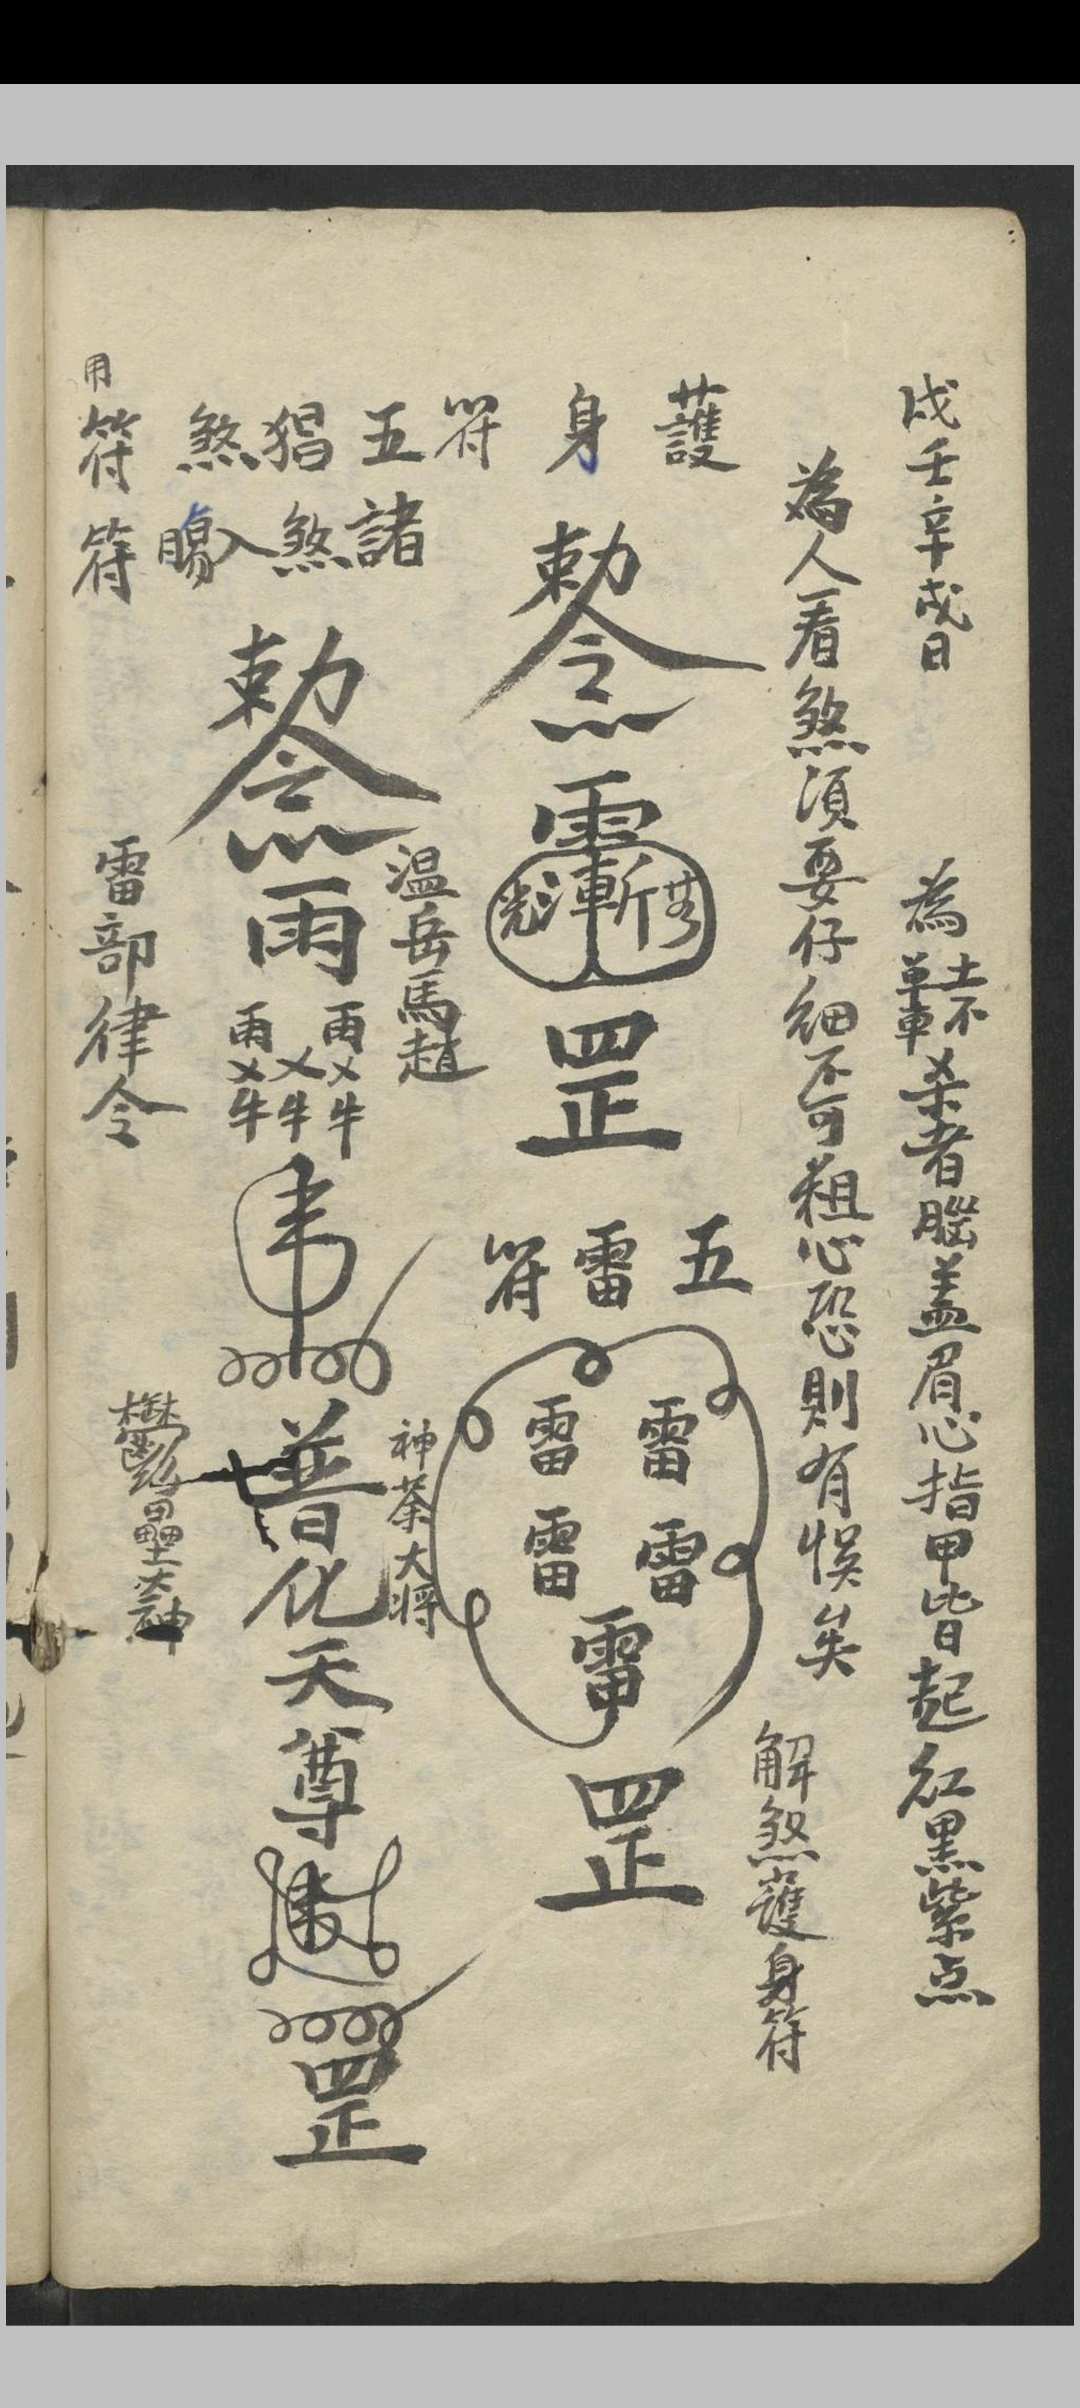 戊壬辛戌日
為
杀者腦蓋眉心指甲皆起紅黑紫点
為人看煞須要仔細不可粗心恐則有悞矣
解煞護身符
護身符
勅令
罡
五雷符
雷雷雷雷雷
罡
五猖煞符
諸煞入
勅令
雨
温岳馬趙
普化天尊
罡
神荼大将
用符
雷部律令
鬱壘大神